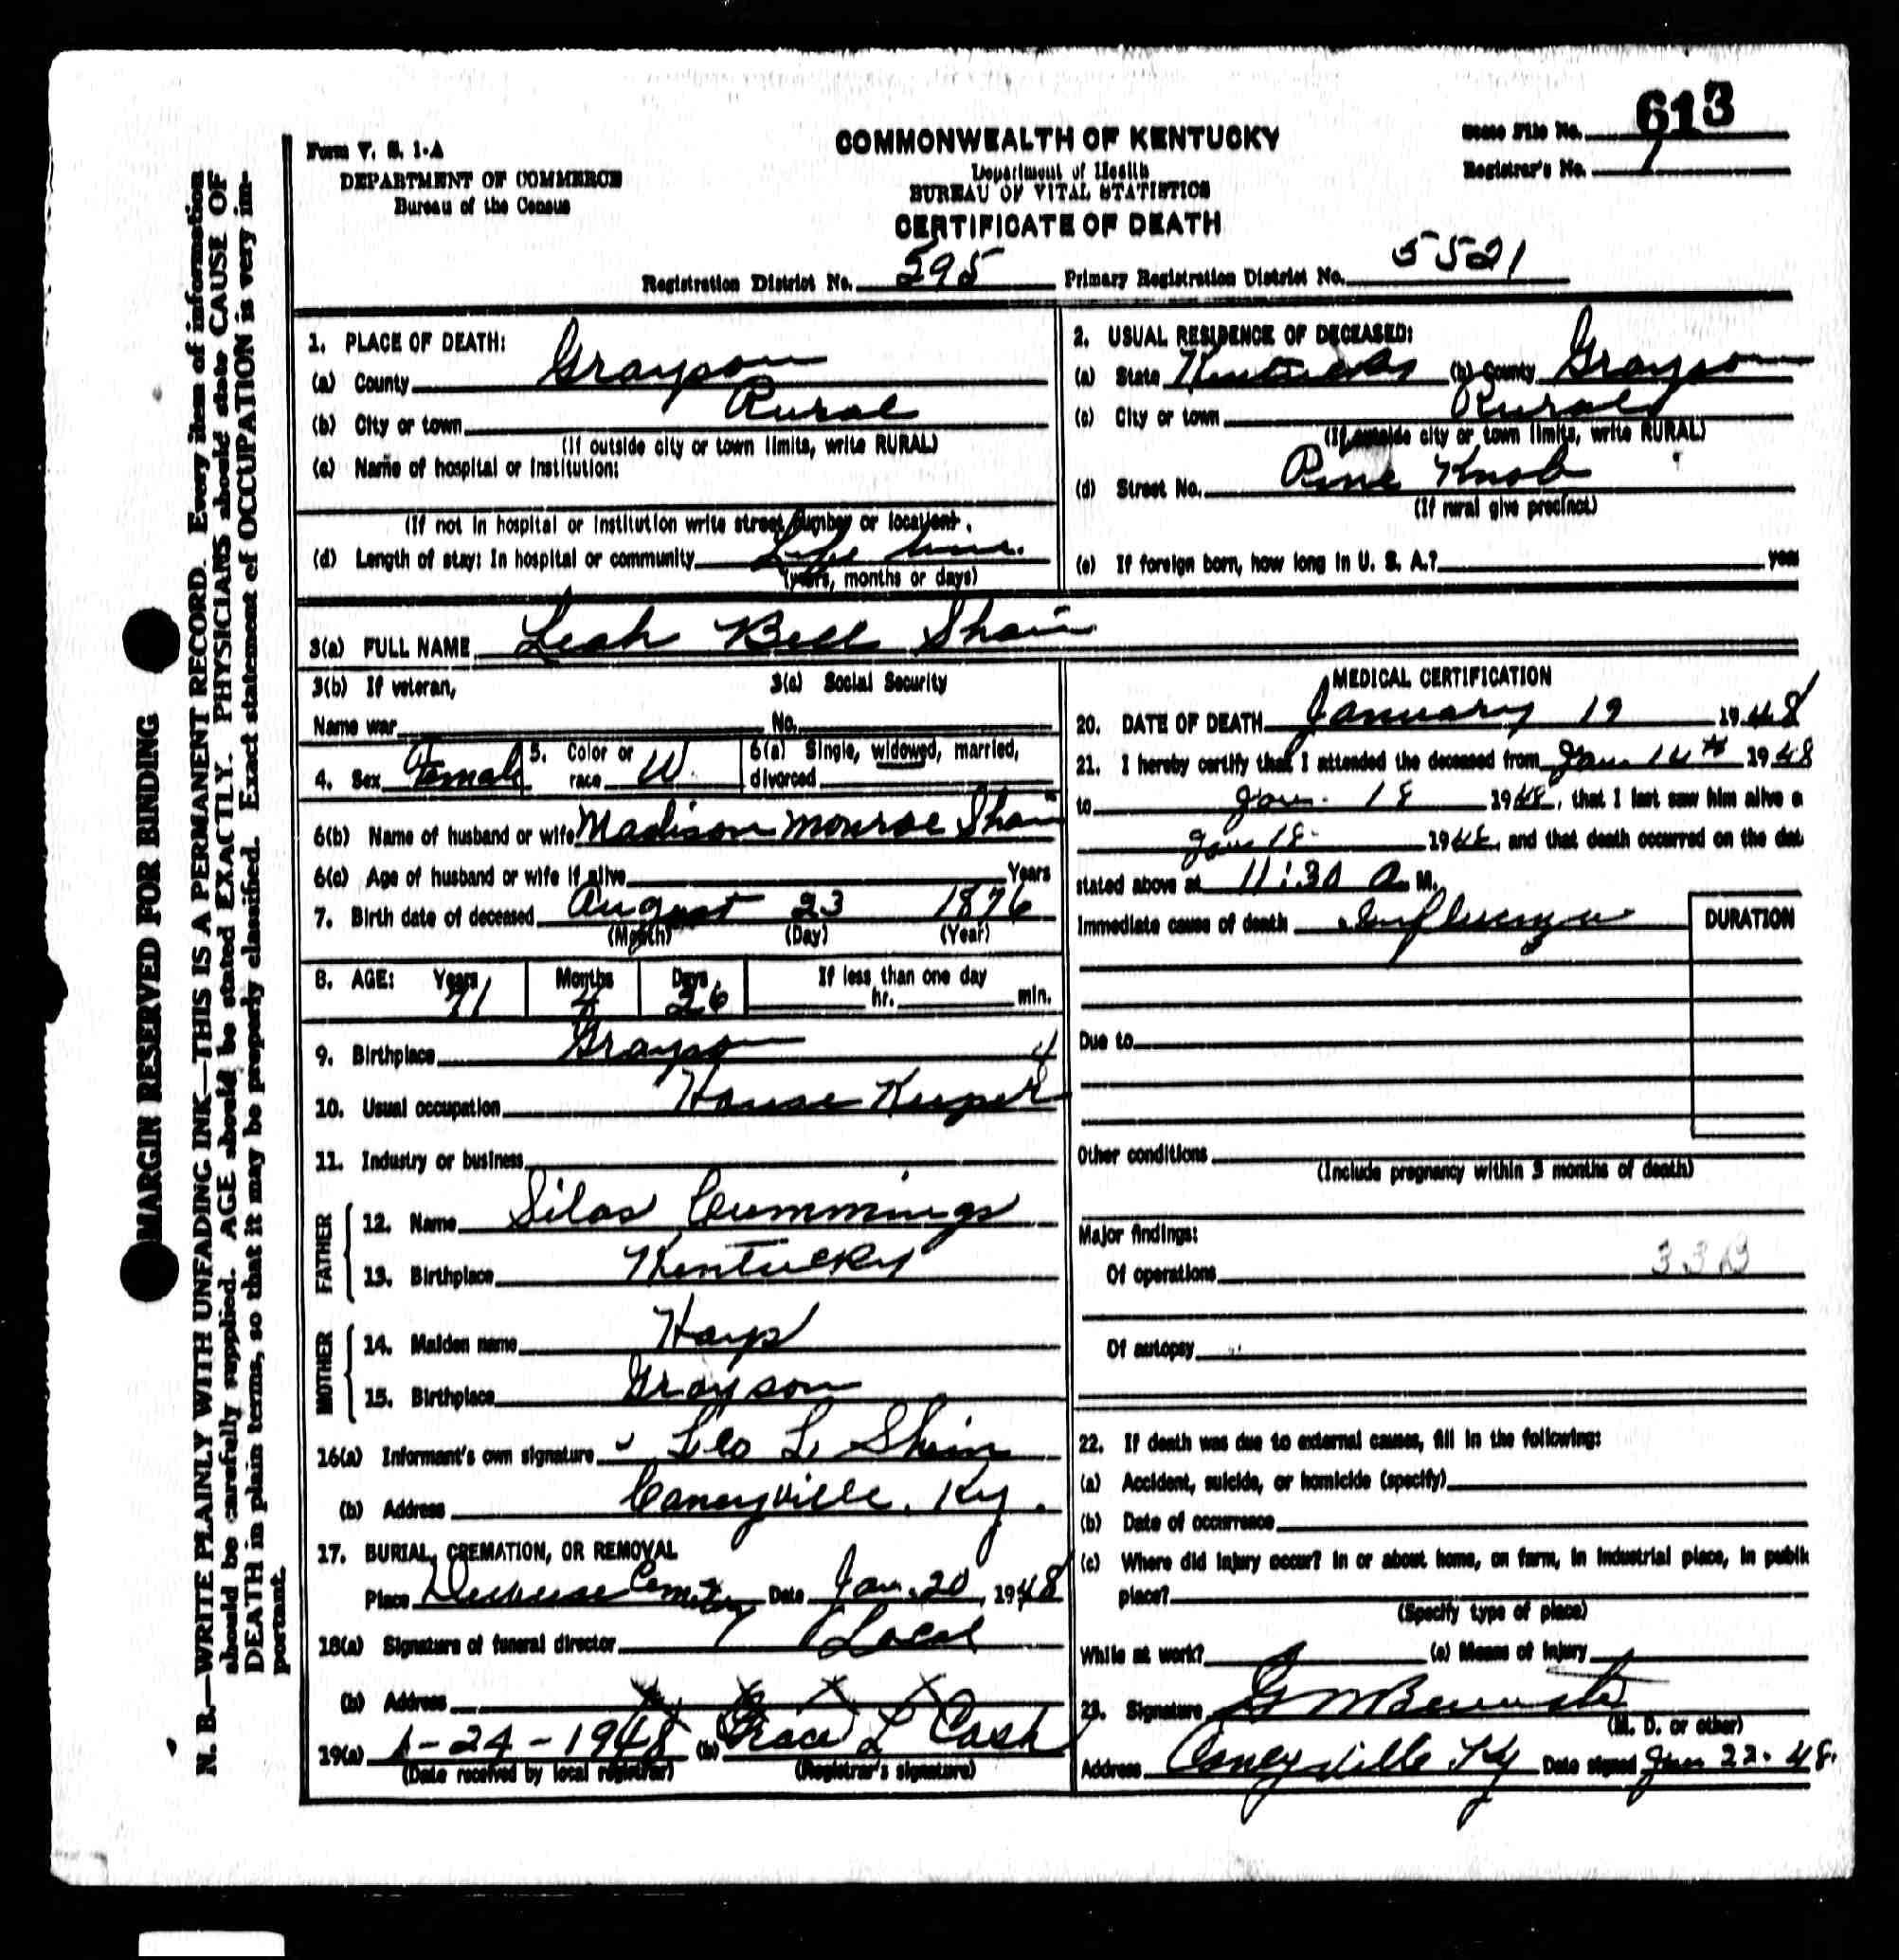 613
State File No.
Registrar's No. 1
Form V. S. 1-A
DEPARTMENT OF COMMERCE
Bureau of the Census
COMMONWEALTH OF KENTUCKY
Department of Health
BUREAU OF VITAL STATISTICS
CERTIFICATE OF DEATH
Registration District No. 595 Primary Registration District No. 5521
MARGIN RESERVED FOR BINDING
N. B.—WRITE PLAINLY WITH UNFADING INK—THIS IS A PERMANENT RECORD. Every item of information
should be carefully supplied. AGE should be stated EXACTLY. PHYSICIANS should state CAUSE OF
DEATH in plain terms, so that it may be properly classified. Exact statement of OCCUPATION is very im-
portant.
1. PLACE OF DEATH:
(a) County Grayson
(b) City or town Rural
(If outside city or town limits, write RURAL)
(c) Name of hospital or institution:
(If not in hospital or institution write street number or location.
(d) Length of stay: In hospital or community Life time.
(years, months or days)
2. USUAL RESIDENCE OF DECEASED:
(a) State Kentucky (b) County Grayson
(c) City or town Rural
(If outside city or town limits, write RURAL)
(d) Street No. Pine Knob
(If rural give precinct)
(e) If foreign born, how long in U. S. A.? yea
3(a) FULL NAME Leah Bell Shain
3(b) If veteran, 3(c) Social Security
Name war No.
4. Sex Female 5. Color or race W 6(a) Single, widowed, married, divorced
6(b) Name of husband or wife Madison Monroe Shain
6(c) Age of husband or wife if alive Years
7. Birth date of deceased August 23 1876
(Month) (Day) (Year)
8. AGE: Years Months Days If less than one day
71 4 26 hr. min.
9. Birthplace Grayson
10. Usual occupation House Keeper
11. Industry or business
FATHER
12. Name Silas Cummings
13. Birthplace Kentucky
MOTHER
14. Maiden name Harp
15. Birthplace Grayson
16(a) Informant's own signature Leo L. Shain
(b) Address Caneyville, Ky.
17. BURIAL, CREMATION, OR REMOVAL
Place Cemetery Date Jan. 20, 1948
18(a) Signature of funeral director Local
(b) Address x x x x
19(a) 1-24-1948 (b) Grace L Cash
(Date received by local registrar) (Registrar's signature)
MEDICAL CERTIFICATION
20. DATE OF DEATH January 19 1948
21. I hereby certify that I attended the deceased from Jan 14th 1948
to Jan. 18 1948, that I last saw him alive o
Jan 18 1948, and that death occurred on the dat
stated above at 11:30 a. M.
Immediate cause of death Influenza DURATION
Due to
Other conditions
(Include pregnancy within 3 months of death)
Major findings:
Of operations 33B
Of autopsy
22. If death was due to external causes, fill in the following:
(a) Accident, suicide, or homicide (specify)
(b) Date of occurrence
(c) Where did injury occur? In or about home, on farm, in industrial place, in public
place?
(Specify type of place)
While at work? (e) Means of injury
23. Signature
(M. D. or other)
Address Caneyville Ky Date signed Jan 22-48.